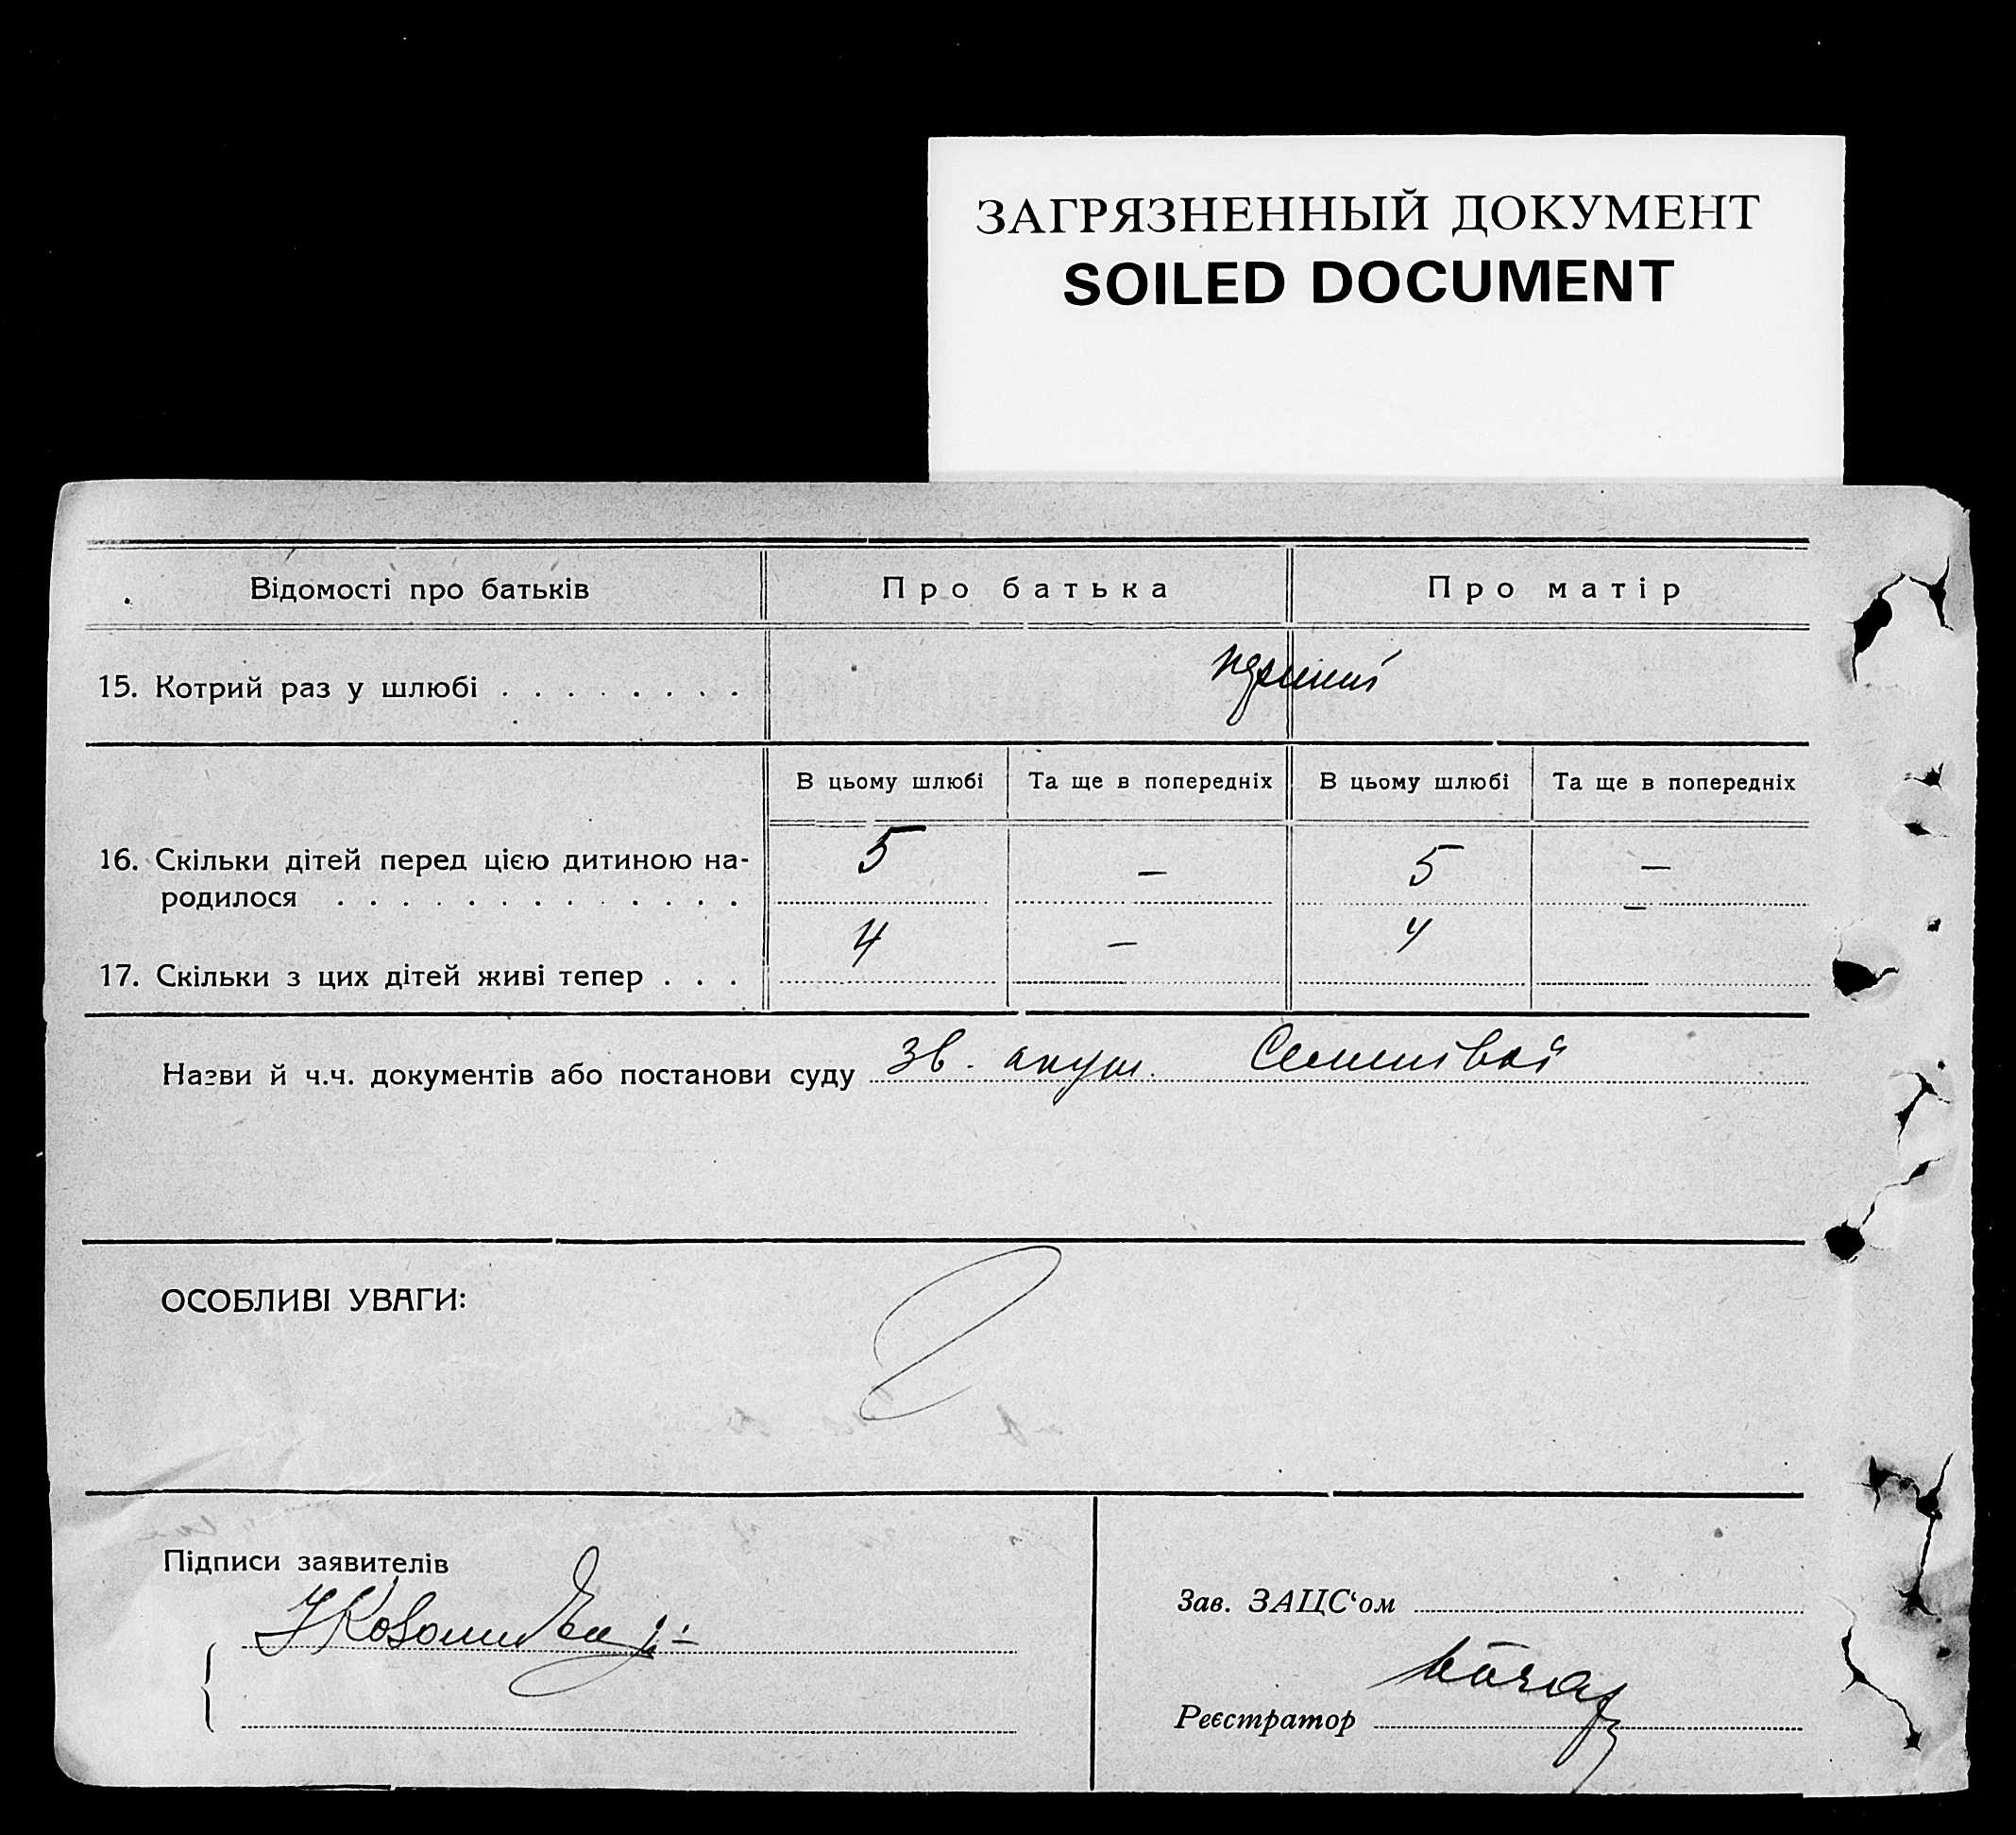 ЗАГРЯЗНЕННЫЙ ДОКУМЕНТ
SOILED DOCUMENT
Відомості про батьків Про батька Про матір
15. Котрий раз у шлюбі . . . . . . . .
В цьому шлюбі Та ще в попередніх В цьому шлюбі Та ще в попередніх
16. Скільки дітей перед цією дитиною на- 5 — 5 —
родилося . . . . . . . . . . . . . —
17. Скільки з цих дітей живі тепер . . . 4 — 4
Назви й ч.ч. документів або постанови суду зв. акуш.
ОСОБЛИВІ УВАГИ:
Підписи заявителів
Зав. ЗАЦС‘ом
Реєстратор